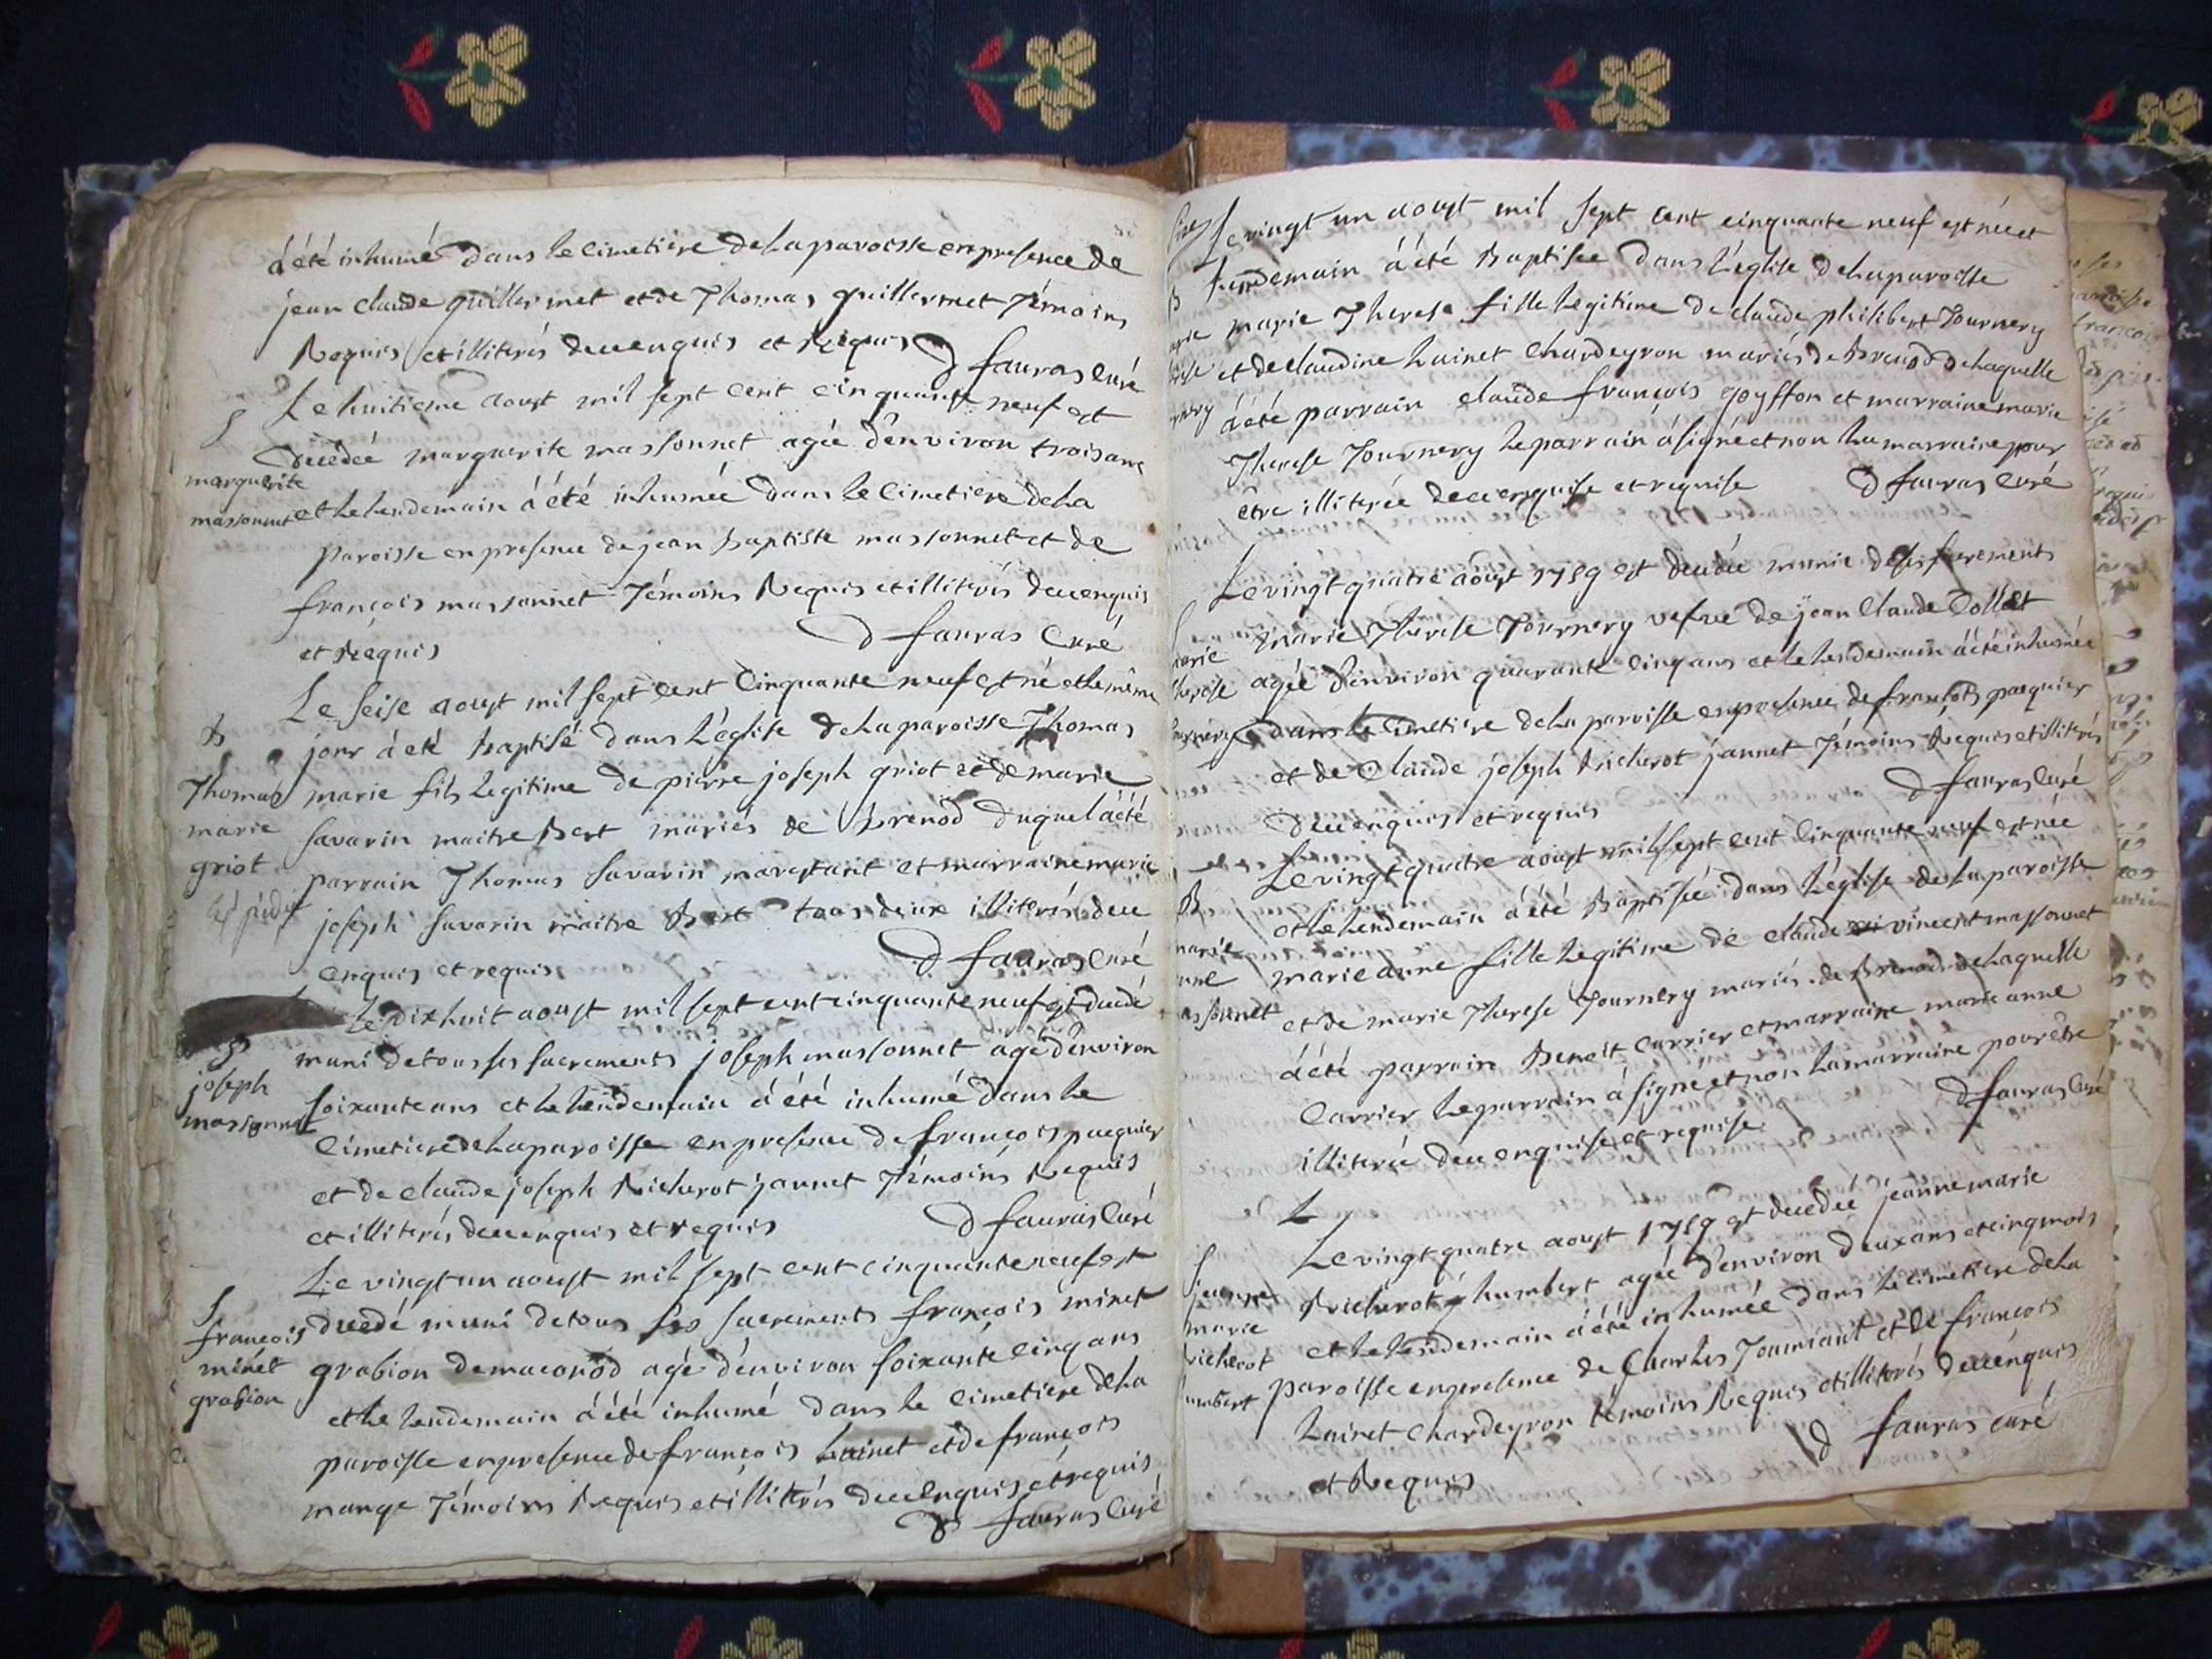 à été inhumé dans le cimetière de la paroisse en presence de
jean claude guillermet et de Thomas guillermet Témoins
Requis et illiterés de ce enquis et Requis D fauras curé
S
Le huitieme aoust mil sept cent cinquante neuf est
decedée marguerite massonnet agée d'environ trois ans
marguerite
massonnet
et le lendemain à été inhumée dans le cimetiere de la
paroisse en presence de jean Baptiste massonnet et de
françois massonnet Témoins Requis et illiterés de ce enquis
et Requis D fauras Curé
Le seise aoust mil sept cent cinquante neuf est né et le même
B
jour à été Baptisé dans l'église de la paroisse Thomas
Thomas
marie
griot
marie fils legitime de pierre joseph griot et de marie
savarin maitre Bert mariés de Brenod duquel à été
parrain Thomas savarin et marraine marie
joseph savarin maitre Bert tous deux illiterés de ce
enquis et requis D fauras curé
Le dixhuit aoust mil sept cent cinquante neuf est decedé
S
joseph
massonnet
muni de tous ses sacrements joseph massonnet agé d'environ
soixante ans et le lendemain à été inhumé dans le
cimetiere de la paroisse en presence de françois pasquier
et de claude joseph Richerot jannet Témoins Requis
et illiterés de ce enquis et requis D fauras curé
Le vingt un aoust mil sept cent cinquante neuf est
S
françois
minet
grabion
decedé muni de tous ses sacrements françois minet
grabion de maconod agé d'environ soixante cinq ans
et le lendemain à été inhumé dans le cimetiere de la
paroisse en presence de françois Lainet et de françois
mange Témoins Requis et illiterés de ce enquis et requis
D fauras curé
Le vingt un aoust mil sept cent cinquante neuf est née et
B
lendemain à été Baptisée dans l'église de la paroisse
marie Therese fille legitime de claude philibert Tournery
et de claudine Lainet Chardeyron mariés de Brenod de laquelle
à été parrain claude françois goyffon et marraine marie
Therese Tournery le parrain à signé et non la marraine pour
être illiterée de ce enquise et requise D fauras curé
Le vingt quatre aoust 1759 est decedée munie de ses sacrements
marie Therese Tournery vefve de jean claude Collet
agée d'environ quarante cinq ans et le lendemain à été inhumée
dans le cimetiere de la paroisse en presence de françois pasquier
et de Claude joseph Richerot jannet Témoins Requis et illiterés
de ce enquis et requis D fauras curé
Le vingt quatre aoust mil sept cent cinquante neuf est née
B
et le lendemain à été Baptisée dans l'église de la paroisse
marie anne fille legitime de claude vincent massonnet
et de marie Therese Tournery mariés de Brenod de laquelle
à été parrain Benoit Carrier et marraine marie anne
Carrier le parrain à signé et non la marraine pour être
illiterée de ce enquise et requise D fauras curé
L
Le vingt quatre aoust 1759 est decedée jeanne marie
S
jeanne
marie
Richerot humbert agée d'environ deux ans et cinq mois
et le lendemain à été inhumée dans le cimetiere de la
paroisse en presence de Charles Toumiant et de françois
Lainet Chardeyron témoins Requis et illiterés de ce enquis
et Requis D fauras curé